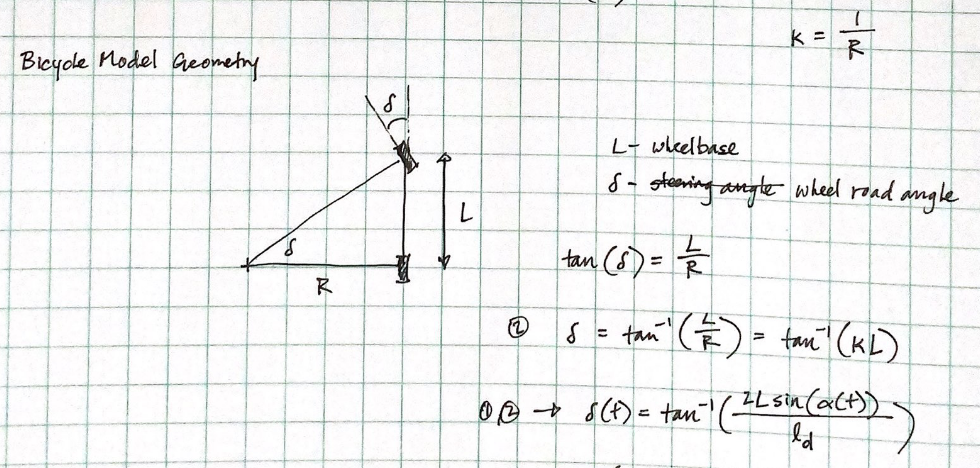 K = 1/R
Bicycle Model Geometry
δ
L - wheelbase
δ - steering angle wheel road angle
L
δ
R
tan(δ) = L/R
② δ = tan⁻¹(L/R) = tan⁻¹(KL)
①② → δ(t) = tan⁻¹(2L sin(α(t))/l_d)